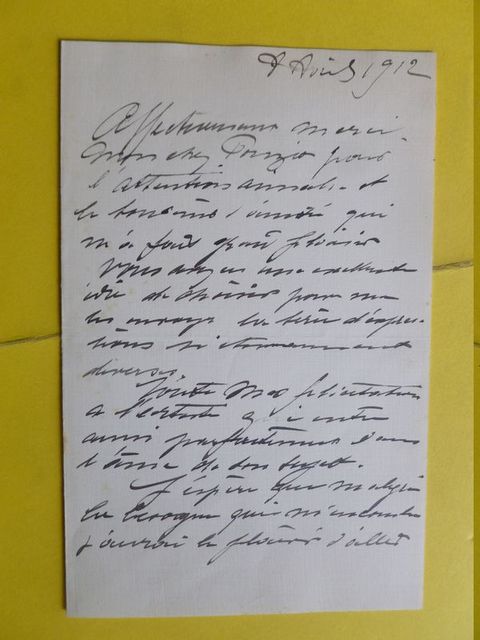 8 Avril 1912
Affectueusement merci
mon cher Porizio pour
l'attention aimable et
le bon d'amitié qui
m'a fait grand plaisir
Vous avez une excellente
idée de choisir pour me
les envoyer la série d'expres-
sions si étonnamment
diverses.
J'envoie mes félicitations
à l'artiste qui entre
aussi parfaitement dans
l'âme de son sujet.
J'espère que malgré
la besogne qui m'incombe
j'aurai le plaisir d'aller